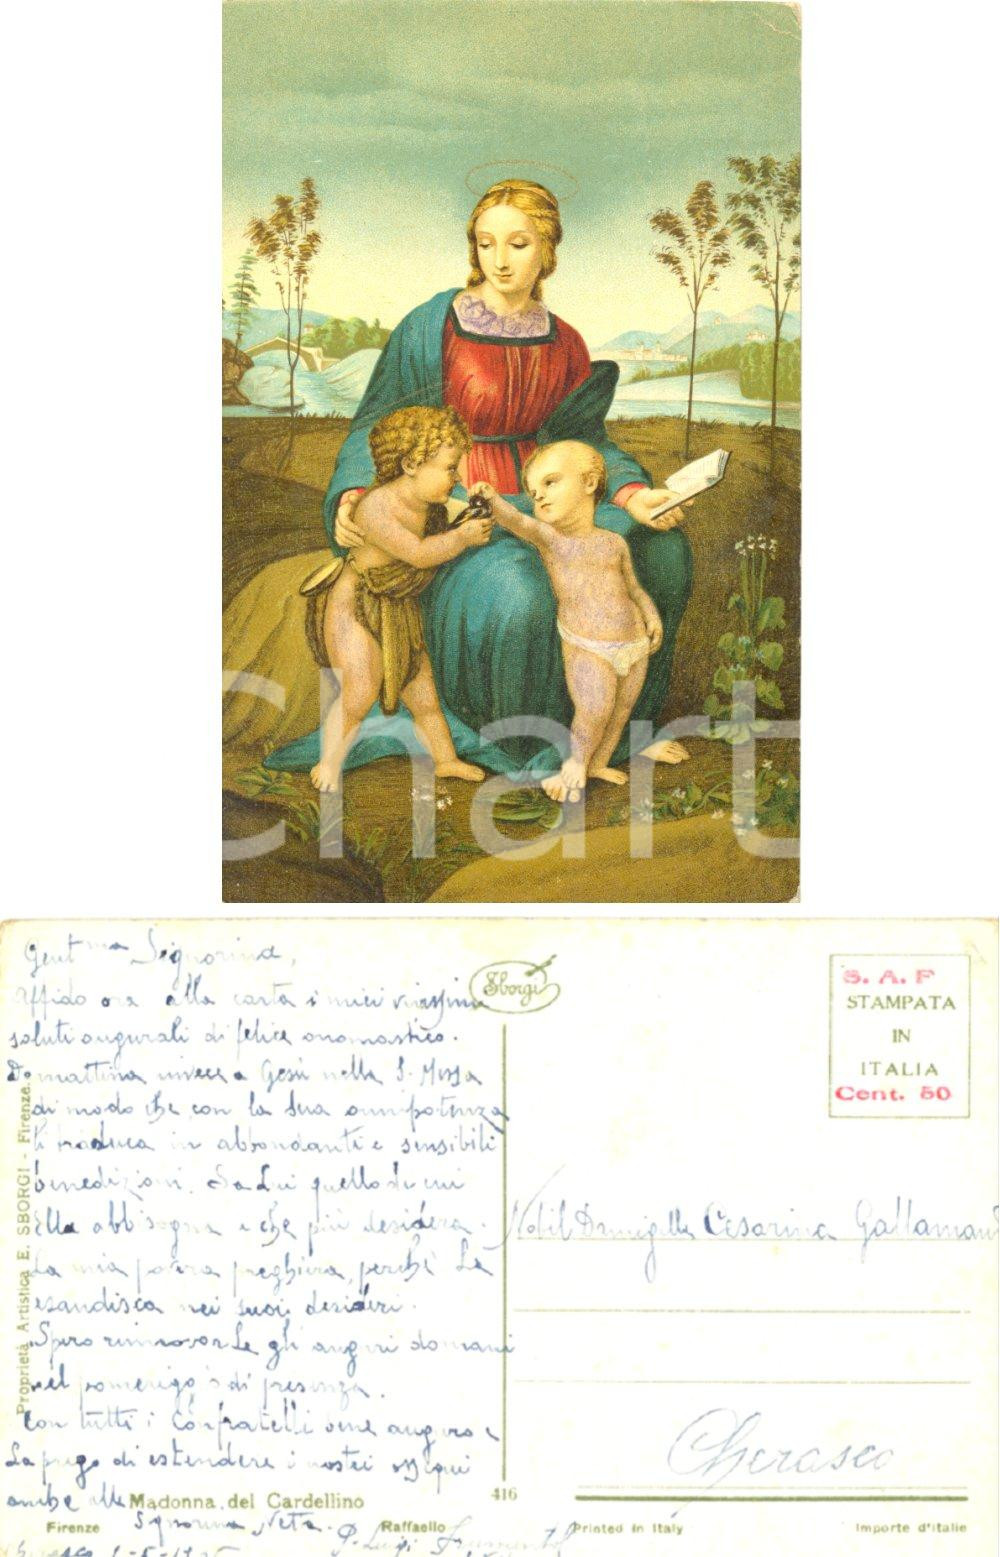 Chart
Gent ma Signorina,
Affido ora alla carta i miei vivissimi
saluti augurali di felice onomastico.
Domattina invece a Gesù nella S. Messa
di modo che con la Sua onnipotenza
li traduca in abbondanti e sensibili
benedizioni. Sa Lui quello di cui
Ella abbisogna e che più desidera.
La mia povera preghiera, perchè La
esaudisca nei suoi desideri.
Spero rinnovarLe gli auguri domani
nel pomeriggio di presenza.
Con tutti i Confratelli bene auguro e
La prego di estendere i nostri ossequi
anche alla
Signorina Neta.
P. Luigi
Proprietà Artistica E. SBORGI - Firenze.
Madonna del Cardellino
Firenze
Raffaello
Sborgi
416
S. A. F
STAMPATA
IN
ITALIA
Cent. 50
Nobil Damigella Cesarina
Cherasco
Printed in Italy
Importe d'italie